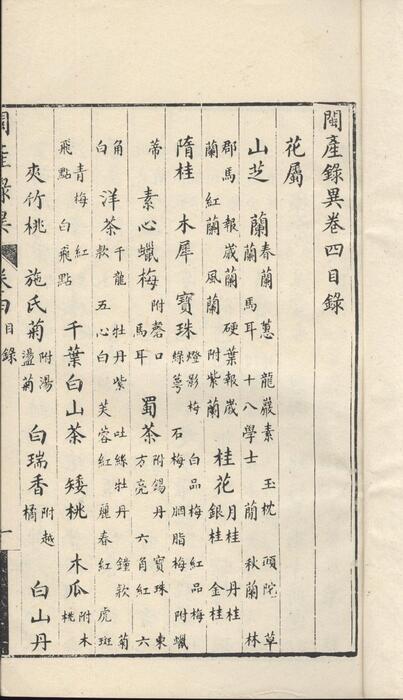 閩產錄異卷四目錄
花屬
山芝 蘭 春蘭 蕙 龍巖素 玉枕 頭陀草
蘭 馬耳 十八學士 蕳 秋蘭 林
郡馬 報歲蘭 硬葉報歲 桂花 月桂 丹桂
蘭 紅蘭 風蘭 附紫蘭 銀桂 金桂
隋桂 木犀 寶珠 燈影梅 白品梅 紅品梅
綠萼 石梅 胭脂梅 附蠟
蒂 素心蠟梅 附磬口 蜀茶 附錫丹 寶珠 東
馬耳 方亮 六角紅 六
角 洋茶 千龍 牡丹紫 吐絲牡丹 鐘款 菊
白 款 五心白 芙蓉紅 麗春紅 虎斑
青梅 紅 千葉白山茶 矮桃 木瓜 附木
飛點 白飛點 桃
夾竹桃 施氏菊 附湯 白瑞香 附越 白山丹
盪菊 橘
閩產錄異 卷四 目錄 一